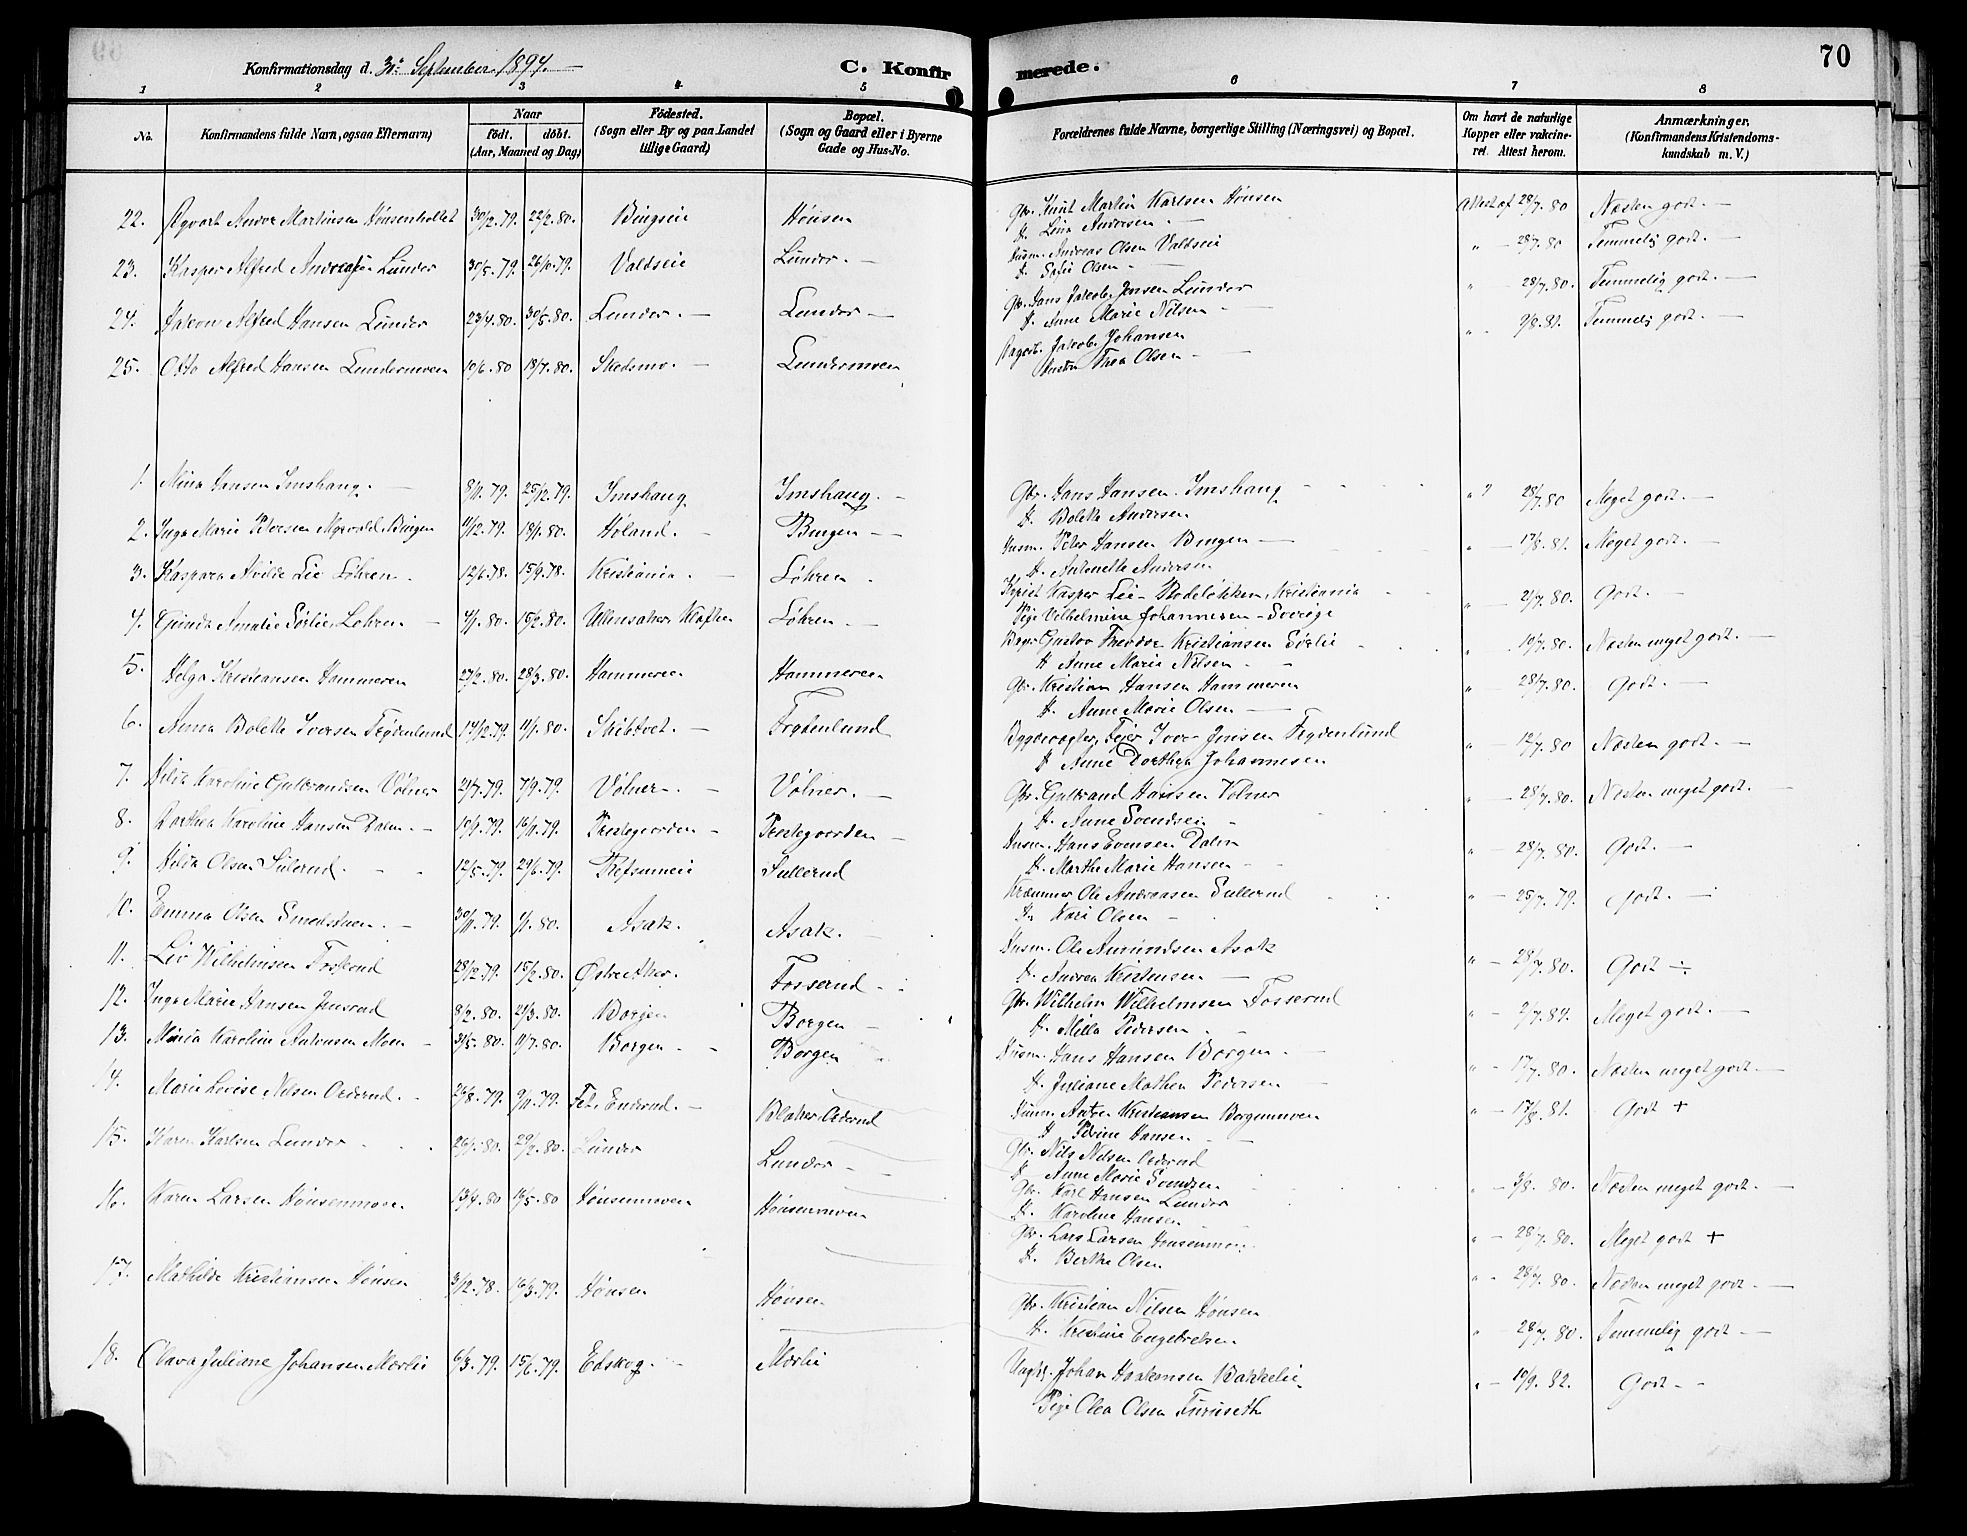 Konfirmationsdag d. 30te September 1894.
C. Konfirmerede.
70
1 2 3 4 5 6 7 8
No.
Konfirmandens fulde Navn, ogsaa Efternavn)
Naar
födt. döbt.
(Aar, Maaned og Dag)
Födested.
(Sogn eller By og paa Landet
tillige Gaard)
Bopæl.
(Sogn og Gaard eller i Byerne
Gade og Hus-No.
Forældrenes fulde Navne, borgerlige Stilling (Næringsvei) og Bopæl.
Om havt de naturlige
Kopper eller vakcine-
ret. Attest herom.
Anmærkninger,
(Konfirmandens Kristendoms-
kundskab m. V.)
22. Andor Martinsen Hönsenhallet 30/12. 79. 22/2. 80. Bingseie Hönsen Gbr. Knut Martin Karlsen Hönsen Attest af 28/7. 80 Næsten godt. —
H. Lina Andersen —
23. Kasper Alfred Andreasen Lunder 30/5. 79. 26/10. 79. Valdseie Lunder. — Husm. Andreas Olsen Valdseie " — 28/7. 80 Temmelig godt. —
H. Sofie Olsen —
24. Hakon Alfred Hansen Lunder 23/4. 80. 30/5. 80. Lunder. — Lunder — Gbr. Hans Jakob Jensen Lunder " — 28/7. 80. Temmelig godt. —
H. Anne Marie Nilsen —
25. Otto Alfred Hansen Lundermoen 10/6. 80 18/7. 80. Skedsmo. — Lundermoen Jakob Johansen " - 9/8. 81. Temmelig godt. —
Hustru Thea Olsen —
1. Mina Hansen Imshaug. — 8/11. 79. 25/12. 79. Imshaug Imshaug. — Gbr. Hans Hansen Imshaug " 28/7. 80 Meget godt. —
H. Bolette Andersen
2. Inga Marie Petersen Bingen 11/12. 79. 18/1. 80. Höland. — Bingen — Husm. Peter Hansen Bingen — " — 17/8. 81. Meget godt. —
H. Antonette Andersen
3. Kaspara Alvilde Lie Löhren. 12/6. 78. 15/9. 78. Kristiania. — Löhren. Kasper Lie - Rodelökken, Kristiania " — 2/7. 80. Godt. —
Pige Vilhelmine Johannesen - Sverige
4. Gunda Amalie Sörlie, Lohren — 4/1. 80. 15/2. 80. Ullensaker Klöften Löhren — Gustav Theodor Kristiansen Sörlie " . 10/7. 80. Næsten meget godt. —
H. Anne Marie Nilsen —
5. Helga Kristiansen Hammeren 27/2. 80. 28/3. 80. Hammeren Hammeren Gbr. Kristian Hansen Hammeren " — 28/7. 80. Godt. —
H. Anne Marie Olsen —
6. Anna Bolette Iversen Frydenlund 14/12. 79. 11/1. 80. Skibtvet. — Frydenlund Iver Jensen Frydenlund " — 12/7. 80 Næsten godt. —
H. Anne Dorthea Johannesen
7. Hilda Karoline Gulbrandsen Völner 21/7. 79. 7/9. 79. Völner. — Völner. — Gbr. Gulbrand Hansen Völner " — 28/7. 80. Næsten meget godt. —
H. Anne Svendsen —
8. Dorthea Karoline Hansen Dalen. — 19/9. 79. 16/11. 79. Prestegaarden — Prestegaarden — Husm. Hans Evensen Dalen " — 28/7. 80. Godt. —
H. Marthe Marie Hansen —
9. Hilda Olsen Sulerud. — 12/5. 79. 29/6. 79. Refsumeie Sullerud Kræmmer Ole Andreasen Sullerud " — 25/7. 79. Godt. —
H. Kari Olsen —
10. Emma Olsen Smedstuen. — 30/11. 79. 1/1. 80. Asak. Asak. — Husm. Ole Amundsen Asak " — 28/7. 80. Godt —
H. Andrea Kristensen —
11. Liv Wilhelmsen Fosserud 28/12. 79. 15/2. 80. Östre Aker. Fosserud — Gbr. Wilhelm Wilhelmsen Fosserud " — 2/7. 84. Meget godt. —
H. Milla Pedersen —
12. Inga Marie Hansen 8/2. 80. 21/3. 80. Borgen Borgen — Husm. Hans Hansen Borgen — " — 17/7. 80. Næsten meget godt. —
H. Juliane Mathea Pedersen —
13. Maria Karoline Antonsen Moen — 31/5. 80. 11/7. 80. Borgen. — Borgen Husm. Anton Kristiansen Borgenmoen " — 17/8. 81. Godt +
H. Petrine Hansen —
14. Marie Lovise Nilsen Ørderud. — 26/8. 79. 9/11. 79. Fet. Enderud. — Blaker Ørderud Gbr. Nils Nilsen Ørderud " — 3/8. 80. Næsten meget godt. —
H. Anne Marie Svendsen
15. Karen Karlsen Lunder 26/1. 80. 29/2. 80. Lunder Lunder — Gbr. Karl Hansen Lunder " — 28/7. 80. Meget godt +
H. Karoline Hansen
16. Karen Larsen Hönsenmoen 13/4. 80 16/5. 80 Hönsenmoen Hönsenmoen Gbr. Lars Larsen Hönsenmoen " — 28/7. 80. Næsten meget godt. —
H. Berthe Olsen
17. Mathilde Kristiansen Hönsen 3/12. 78. 16/3. 79. Hönsen Hönsen Gbr. Kristian Nilsen Hönsen " — 28/7. 80. Temmelig godt. —
H. Kristine Engebretsen
18. Clara Juliane Johansen Mærlie 6/3. 79. 15/6. 79. Edskog. — Mærlie Ungkl. Johan Haakensen Bakkelie " — 10/9. 82. Godt —
Pige Olea Olsen Furuseth